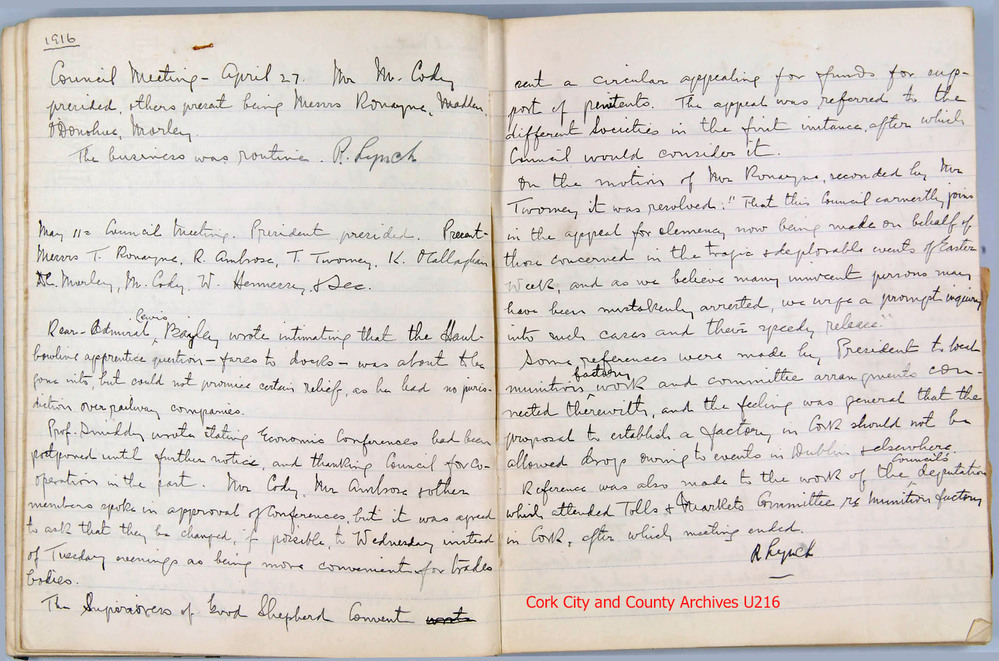 1916
Council Meeting - April 27. Mr M. Cody
presided, others present being Messrs Ronayne, Madden,
O'Donohue, Morley.
The business was routine. R. Lynch
May 11= Council Meeting. President presided. Present-
Messrs T. Ronayne, R. Ambrose, T. Twomey, K. O'Callaghan
C. Morley, M. Cody, W. Hennessy, & Sec.
Lewis
Rear-Admiral Bayley wrote intimating that the Haul-
bowline apprentice question - fares to docks - was about to be
gone into, but could not promise certain relief, as he had no juris-
diction over railway companies.
Prof. Smiddy wrote stating Economic Conferences had been
postponed until further notice, and thanking Council for co-
operation in the past. Mr Cody, Mr Ambrose & other
members spoke in approval of Conferences, but it was agreed
to ask that they be changed, if possible, to Wednesday instead
of Tuesday evenings as being more convenient for trades
bodies.
The Superioress of Good Shepherd Convent wrote
sent a circular appealing for funds for sup-
port of penitents. The appeal was referred to the
different Societies in the first instance, after which
Council would consider it.
On the motion of Mr Ronayne, seconded by Mr
Twomey it was resolved: "That this Council earnestly joins
in the appeal for clemency now being made on behalf of
those concerned in the tragic & deplorable events of Easter
Week, and as we believe many innocent persons may
have been mistakenly arrested, we urge a prompt inquiry
into such cases and their speedy release."
Some references were made by President to local
factory
munitions work and committee arrangements con-
nected therewith, and the feeling was general that the
proposal to establish a factory in Cork should not be
allowed drop owing to events in Dublin & elsewhere.
Council's
Reference was also made to the work of the deputation
which attended Tolls & Markets Committee re munitions factory
in Cork, after which meeting ended.
R Lynch
Cork City and County Archives U216